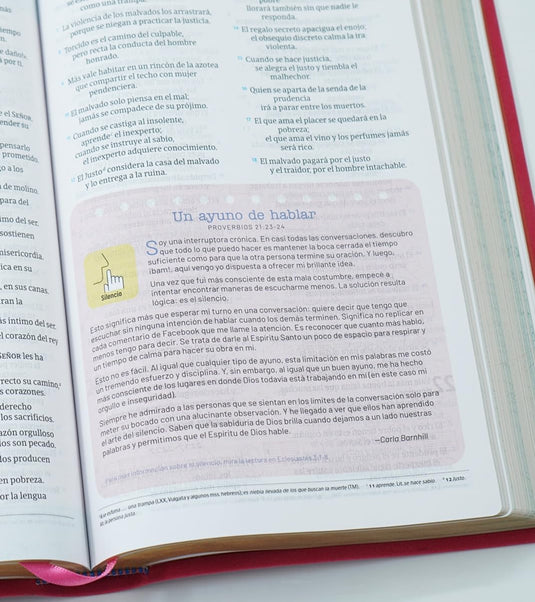 como una trampa.
La violencia de los malvados los arrastrará,
porque se niegan a practicar la justicia.
Torcido es el camino del culpable,
pero recta la conducta del hombre
honrado.
Más vale habitar en un rincón de la azotea
que compartir el techo con mujer
pendenciera.
El malvado solo piensa en el mal;
jamás se compadece de su prójimo.
Cuando se castiga al insolente,
aprende el inexperto;
cuando se instruye al sabio,
el inexperto adquiere conocimiento.
El Justo considera la casa del malvado
y lo entrega a la ruina.
llorará sin que nadie le
responda.
14 El regalo secreto apacigua el enojo;
el obsequio discreto calma la ira
violenta.
15 Cuando se hace justicia,
se alegra el justo y tiembla el
malhechor.
16 Quien se aparta de la senda de la
prudencia
irá a parar entre los muertos.
17 El que ama el placer se quedará en la
pobreza;
el que ama el vino y los perfumes jamás
será rico.
18 El malvado pagará por el justo
y el traidor, por el hombre intachable.
Un ayuno de hablar
PROVERBIOS 21:23-24
Silencio
Soy una interruptora crónica. En casi todas las conversaciones, descubro
que todo lo que puedo hacer es mantener la boca cerrada el tiempo
suficiente como para que la otra persona termine su oración. Y luego,
¡bam!, aquí vengo yo dispuesta a ofrecer mi brillante idea.
Una vez que fui más consciente de esta mala costumbre, empecé a
intentar encontrar maneras de escucharme menos. La solución resulta
lógica: es el silencio.
Esto significa más que esperar mi turno en una conversación: quiere decir que tengo que
escuchar sin ninguna intención de hablar cuando los demás terminen. Significa no replicar en
cada comentario de Facebook que me llame la atención. Es reconocer que cuanto más hablo,
menos tengo para decir. Se trata de darle al Espíritu Santo un poco de espacio para respirar y
un tiempo de calma para hacer su obra en mí.
Esto no es fácil. Al igual que cualquier tipo de ayuno, esta limitación en mis palabras me costó
un tremendo esfuerzo y disciplina. Y, sin embargo, al igual que un buen ayuno, me ha hecho
más consciente de los lugares en donde Dios todavía está trabajando en mí (en este caso mi
orgullo e inseguridad).
Siempre he admirado a las personas que se sientan en los límites de la conversación solo para
meter su bocado con una alucinante observación. Y he llegado a ver que ellos han aprendido
el arte del silencio. Saben que la sabiduría de Dios brilla cuando dejamos a un lado nuestras
palabras y permitimos que el Espíritu de Dios hable.
—Carla Barnhill
Para más información sobre el silencio, mira la lectura en Eclesiastés 5:1-6.
tiempo
el SEÑOR,
pensarlo
prometido.
de molino.
para del
imo del ser.
sostienen
misericordia,
fica en su
, en sus canas.
ran la
s íntimo del ser.
el corazón del rey
SEÑOR les ha
recto su camino,
s corazones.
derecho
los sacrificios.
azón orgulloso
ios son pecado.
los producen
en pobreza.
or la lengua